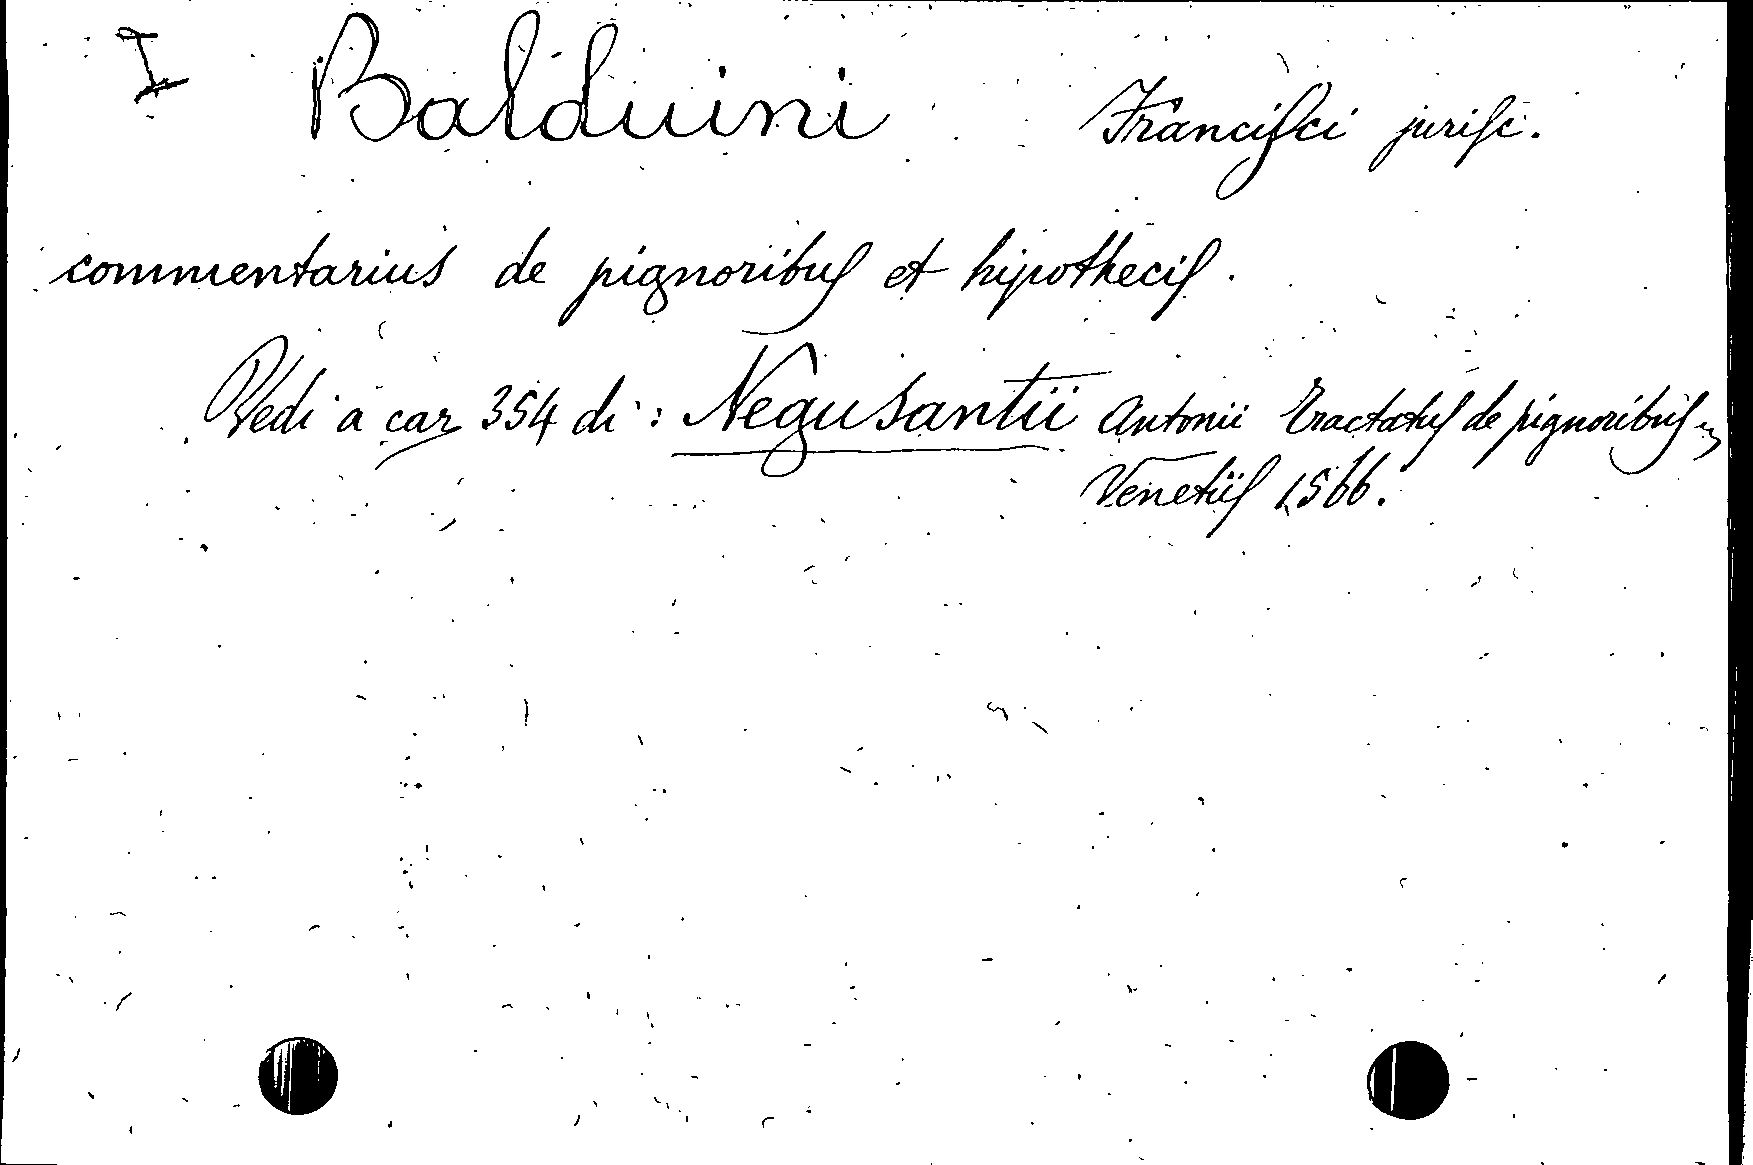 I Balduini Franciſci juriſc.
commentarius de pignoribuſ et hipotheciſ.
Vedi a car 354 di: Negusantii Antonii Tractatuſ de pignoribuſ
Venetiiſ 1566.